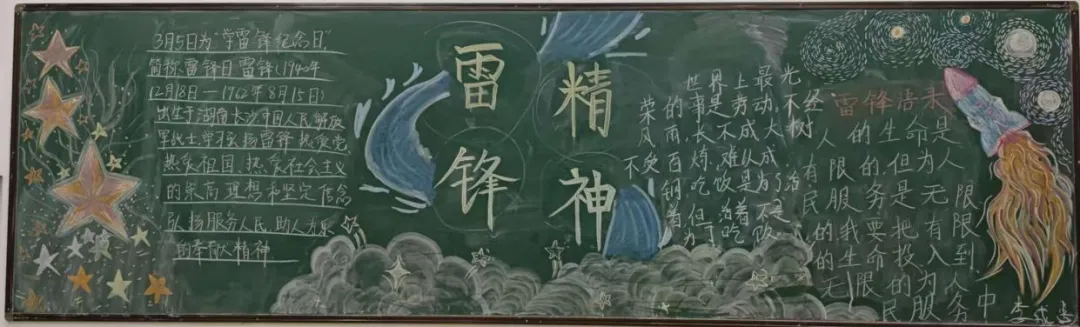 3月5日为“学雷锋纪念日”
简称雷锋日 雷锋(1940年
12月18日—1962年8月15日)
出生于湖南长沙中国人民解放
军战士学习弘扬雷锋热爱党
热爱祖国、热爱社会主义
的崇高理想和坚定信念
弘扬服务人民、助人为乐
的奉献精神
雷锋
精神
世界上最光
荣的事是劳动
不经
风雨长不成大树
不受百炼难以成钢
吃饭是为了活着但活着不是为了吃饭
雷锋语录
人的生命是
有限的但为人
民服务是无限
的我要把有限
的生命投入到
无限的为人
民服务中